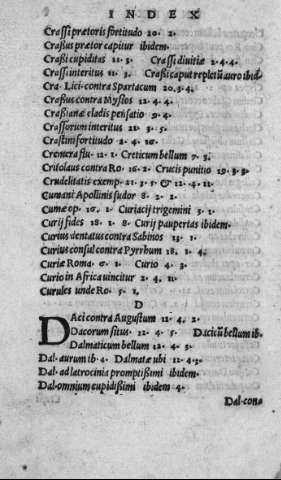 INDEX
Crassi prætoris fortitudo 20. 2.
Crassus prætor capitur ibidem.
Crassi cupiditas 11. 3. Crassi divitiæ 2. 4. 4.
Crassi interitus 11. 3. Crassi caput repletū auro ibid.
Cra. Lici. contra Spartacum 20. 3. 4.
Crassus contra Mysios 12. 4. 4.
Crassianæ cladis pensatio 9. 4.
Crassorum interitus 21. 3. 5.
Crastini fortitudo 2. 4. 10.
Cremera flu. 12. 1. Creticum bellum 7. 3.
Critolaus contra Ro. 16. 2. Crucis punitio 19. 3. 3
Crudelitatis exemp. 21. 3. 5 & 12. 4. 11.
Cumani Apollinis sudor 8. 2. 2.
Cumæ op. 16. 1. Curiacij trigemini 3. 1.
Curij fides 18. 1. 8. Curij paupertas ibidem.
Curius dentatus contra Sabinos 15. 1.
Curius consul contra Pyrrhum 18. 1. 4.
Curiæ Romæ 6. 1. Curio 4. 3.
Curio in Africa uincitur 2. 4. 11.
Curules unde Ro. 5. 1.
D
Daci contra Augustum 12. 4. 2.
Dacorum situs. 12. 4. 5. Dacicū bellum ib.
Dalmaticum bellum 12. 4. 5.
Dal. aurum ib. 4. Dalmatæ ubi 12. 4. 3.
Dal. ad latrocinia promptissimi ibidem.
Dal. omnium cupidissimi ibidem 4.
Dal. cona